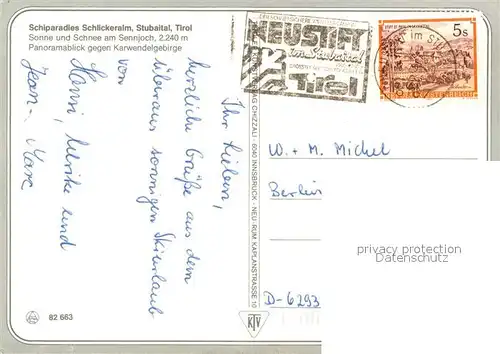 Schiparadies Schlickeralm, Stubaital, Tirol
Sonne und Schnee am Sennjoch, 2.240 m
Panoramablick gegen Karwendelgebirge
Ihr Lieben,
herzliche Grüße aus dem
überaus sonnigen Skiurlaub
von
Hanni, Ulrike und
Jean-Marc
82 663
VERLAG CHIZZALI - 6040 INNSBRUCK - NEU-RUM KAPLANSTRASSE 10
KTV
NEUSTIFT
im Stubaital
Tirol
im
5s
W. + M. Michel
Berlin
D-6293
privacy protection
DELCAMPE.NET